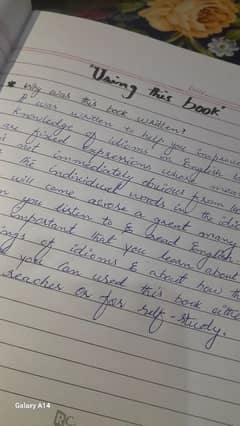 "Using this book"
* Why was this book written?
It was written to help you improve
knowledge of idioms in English
are fixed expressions whose mean
is not immediately obvious from
the individual words in the idi
will come across a great many
you listen to & read English
important that you learn about
ings of idioms & about how th
you can used this book eithe
teacher or for self-study.
Galaxy A14